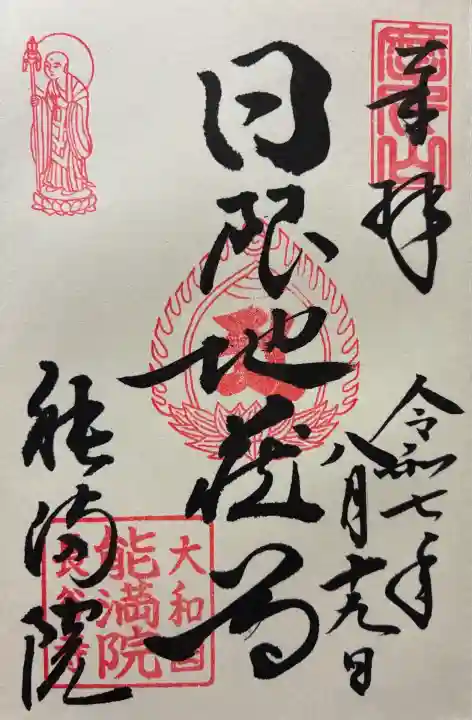 奉拝
令和七年
八月十九日
日限地蔵尊
能満院
大和国
能満院
長谷寺